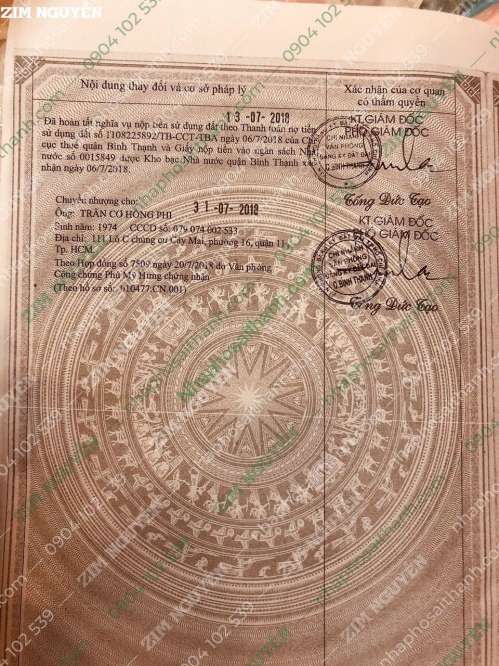 ZIM NGUYỄN
0904 102 539
Nội dung thay đổi và cơ sở pháp lý
Xác nhận của cơ quan
có thẩm quyền
13-07-2018
Đã hoàn tất nghĩa vụ nộp tiền sử dụng đất theo Thanh toán nợ tiền
sử dụng đất số 1108225892/TB-CCT-TBA ngày 06/7/2018 của Chi
cục thuế quận Bình Thạnh và Giấy nộp tiền vào ngân sách Nhà
nước số 0015849 được Kho bạc Nhà nước quận Bình Thạnh xác
nhận ngày 06/7/2018.
KT GIÁM ĐỐC
PHÓ GIÁM ĐỐC
CHI NHÁNH
VĂN PHÒNG
ĐĂNG KÝ ĐẤT ĐAI
Q.BÌNH THẠNH
Tống Đức Tạo
31-07-2018
Chuyển nhượng cho:
Ông: TRẦN CƠ HỒNG PHI
Sinh năm: 1974 CCCD số: 079 074 002 533
Địa chỉ: 111 Lô C chung cư Cây Mai, phường 16, quận 11,
Tp. HCM.
Theo Hợp đồng số 7509 ngày 20/7/2018 do Văn phòng
Công chứng Phú Mỹ Hưng chứng nhận
(Theo hồ sơ số: 010477.CN.001)
KT GIÁM ĐỐC
PHÓ GIÁM ĐỐC
CHI NHÁNH
VĂN PHÒNG
ĐĂNG KÝ ĐẤT ĐAI
Q.BÌNH THẠNH
Tống Đức Tạo
nhaphosaithanh.com
ZIM NGUYỄN
0904 102 539